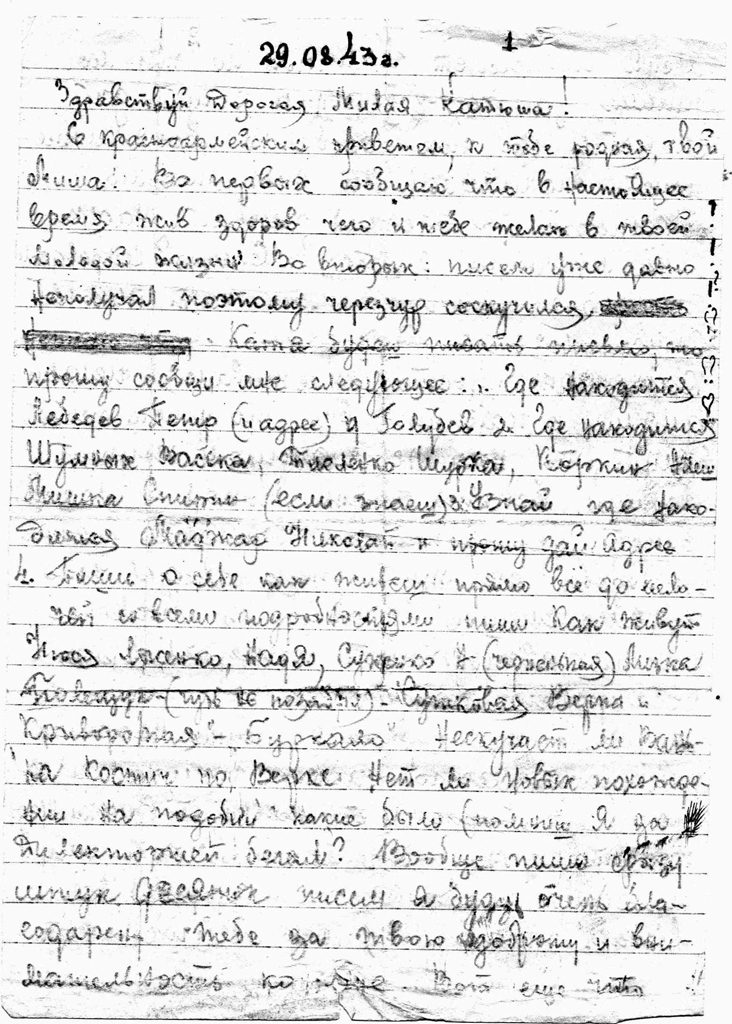 29.08.43г. 1
Здравствуй Дорогая Милая Катюша!
С красноармейским приветом, к тебе родная, твой
Миша! Во первых сообщаю что в настоящее
время жив здоров чего и тебе желаю в твоей
молодой жизни Во вторых: писем уже давно
неполучал поэтому черезчур соскучился,
Катя будеш писать письмо, то
прошу сообщи мне следующее: Где находится
Лебедев Петр (и адрес) и Голубев 2. Где находится
Васька, Шурка, Коржик
Мишка Спирин (если знаеш) 3. Узнай где нахо-
дится Николай и прошу дай Адрес
4. Пиши о себе как живеш прямо всё до мело-
чей со всеми подробностями пиши Как живут
Нюся Лысенко, Надя, (черненькая) Лизка
Верка и
Криворотая - "Буркало" Нескучает ли Вань-
ка Костин по Верке. Нет ли новых похожде-
ний на подобии какие было (помниш я за
бегал? Вообще пиши сразу
штук десяток писем я буду очень бла-
годарен, тебе за твою доброту и вни-
мательность ко мне. Вот еще что